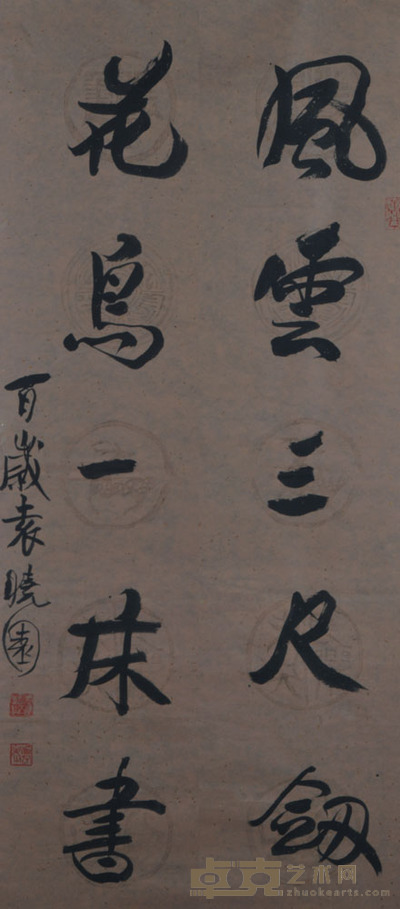 風雲三尺劔
花鳥一床書
百歲袁曉園
卓克艺术网
zhuokearts.com